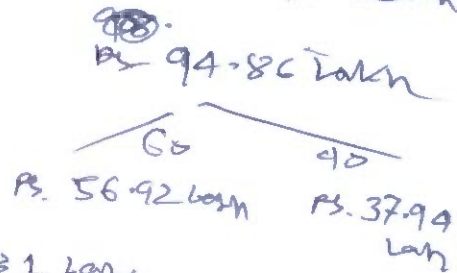 Rs. 94.86 Lakh
60 40
Rs. 56.92 Lakh Rs. 37.94
Lakh